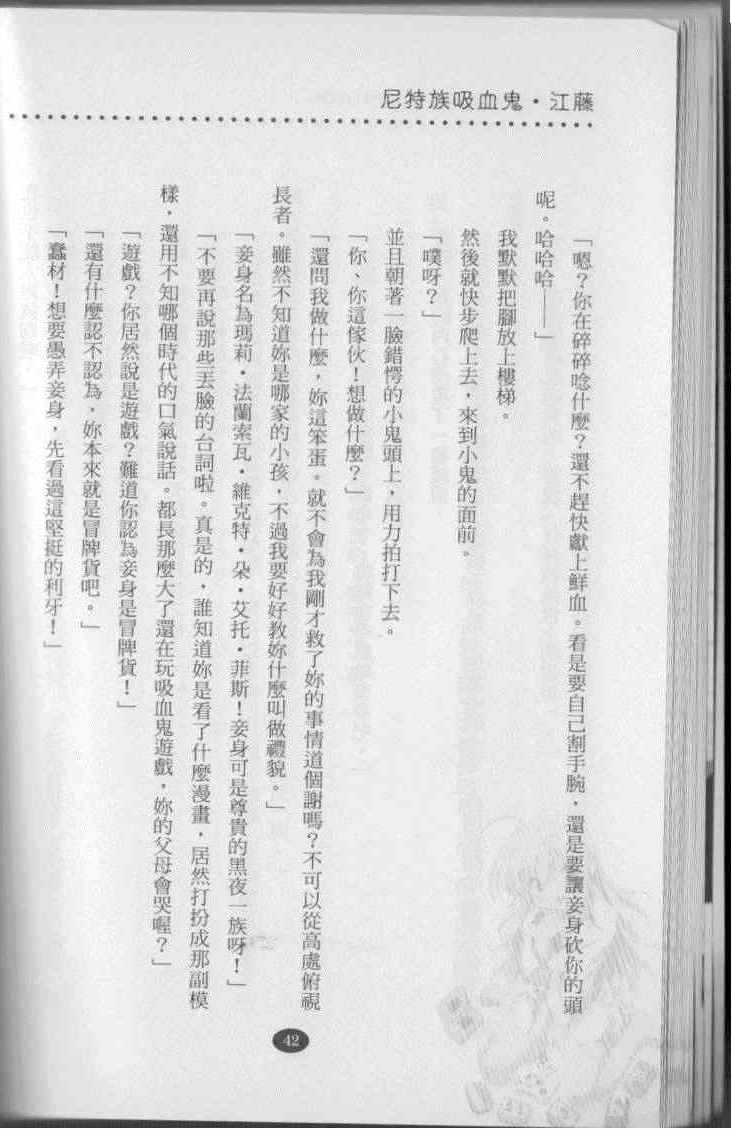 尼特族吸血鬼・江藤
「嗯？你在碎碎唸什麼？還不趕快獻上鮮血。看是要自己割手腕，還是要讓妾身砍你的頭
呢。哈哈哈——」
我默默把腳放上樓梯。
然後就快步爬上去，來到小鬼的面前。
「噗呀？」
並且朝著一臉錯愕的小鬼頭上，用力拍打下去。
「你、你這傢伙！想做什麼？」
「還問我做什麼，妳這笨蛋。就不會為我剛才救了妳的事情道個謝嗎？不可以從高處俯視
長者。雖然不知道妳是哪家的小孩，不過我要好好教妳什麼叫做禮貌。」
「妾身名為瑪莉・法蘭索瓦・維克特・朵・艾托・菲斯！妾身可是尊貴的黑夜一族呀！」
「不要再說那些丟臉的台詞啦。真是的，誰知道妳是看了什麼漫畫，居然打扮成那副模
樣，還用不知哪個時代的口氣說話。都長那麼大了還在玩吸血鬼遊戲，妳的父母會哭喔？」
「遊戲？你居然說是遊戲？難道你認為妾身是冒牌貨！」
「還有什麼認不認為，妳本來就是冒牌貨吧。」
「蠢材！想要愚弄妾身，先看過這堅挺的利牙！」
42